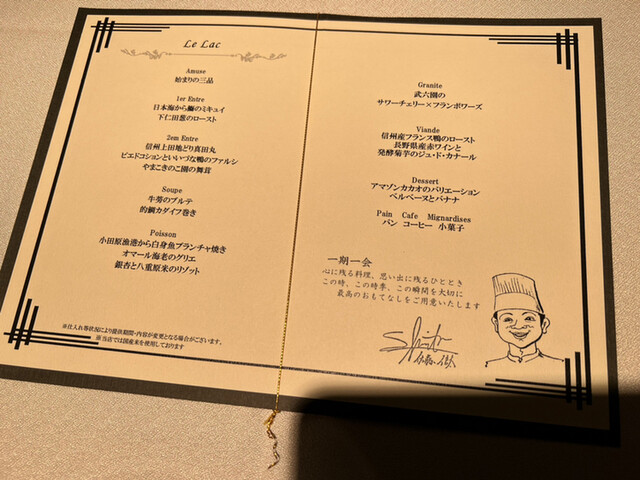 Le Lac
Amuse
始まりの三品
1er Entre
日本海から鰤のミキュイ
下仁田葱のロースト
2em Entre
信州上田地どり真田丸
ピエドコションといいづな鴨のファルシ
やまこきのこ園の舞茸
Soupe
牛蒡のブルテ
的鯛カダイフ巻き
Poisson
小田原漁港から白身魚プランチャ焼き
オマール海老のグリエ
銀杏と八重原米のリゾット
※仕入れ券状況により提供期間・内容が変更となる場合がございます。
※当店では国産米を使用しております
Granite
武六園の
サワーチェリー×フランボワーズ
Viande
信州産フランス鴨のロースト
長野県産赤ワインと
発酵菊芋のジュ・ド・カナール
Dessert
アマゾンカカオのバリエーション
ベルベーヌとバナナ
Pain Cafe Mignardises
パン コーヒー 小菓子
一期一会
心に残る料理、思い出に残るひととき
この時、この時季、この瞬間を大切に
最高のおもてなしをご用意いたします